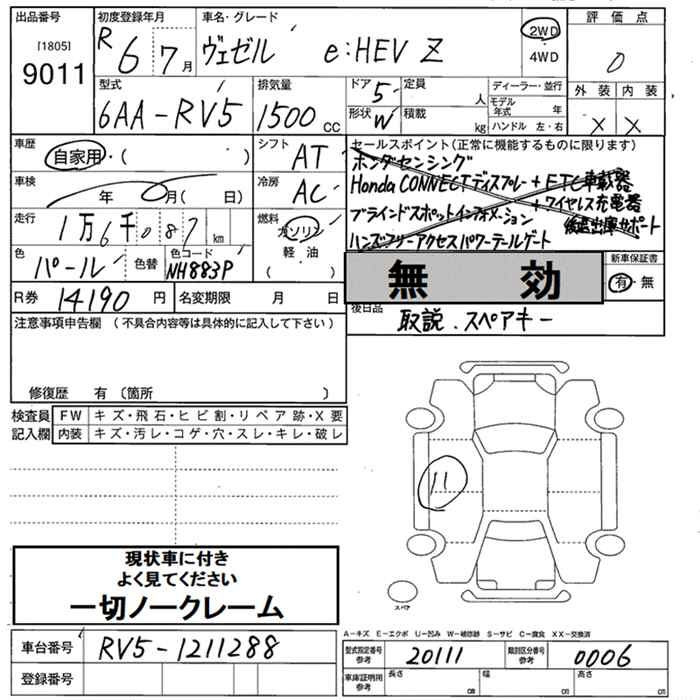 出品番号
[1805]
9011
初度登録年月
R 6 7月
車名・グレード
ヴェゼル e:HEV Z
2WD
4WD
評価点
0
型式
6AA-RV5
排気量
1500 CC
ドア 5
形状 W
定員 人
積載 kg
ディーラー・並行
モデル年式 年
ハンドル 左・右
外装 内装
X X
車歴
自家用・( )
シフト AT
車検
年 月( 日)
冷房 AC
走行
1万6千087 km
燃料
ガソリン
軽油
( )
色
パール
色替
色コード
NH883P
R券 14190 円
名変期限 月 日
セールスポイント(正常に機能するものに限ります)
ホンダセンシング
Honda CONNECTディスプレー + ETC車載器
+ ワイヤレス充電器
ブラインドスポットインフォメーション
後退出庫サポート
ハンズフリーアクセスパワーテールゲート
無効
新車保証書
有・無
後日品
取説.スペアキー
注意事項申告欄(不具合内容等は具体的に記入して下さい)
修復歴 有(箇所 )
検査員記入欄
FW キズ・飛石・ヒビ割・リペア跡・X要
内装 キズ・汚レ・コゲ・穴・スレ・キレ・破レ
11
スペア
現状車に付き
よく見てください
一切ノークレーム
A-キズ E-エクボ U-凹み W-補修跡 S-サビ C-腐食 XX-交換済
車台番号 RV5-1211288
登録番号
型式指定番号 参考 20111
類別区分番号 参考 0006
車庫証明用 参考
長さ cm
幅 cm
高さ cm